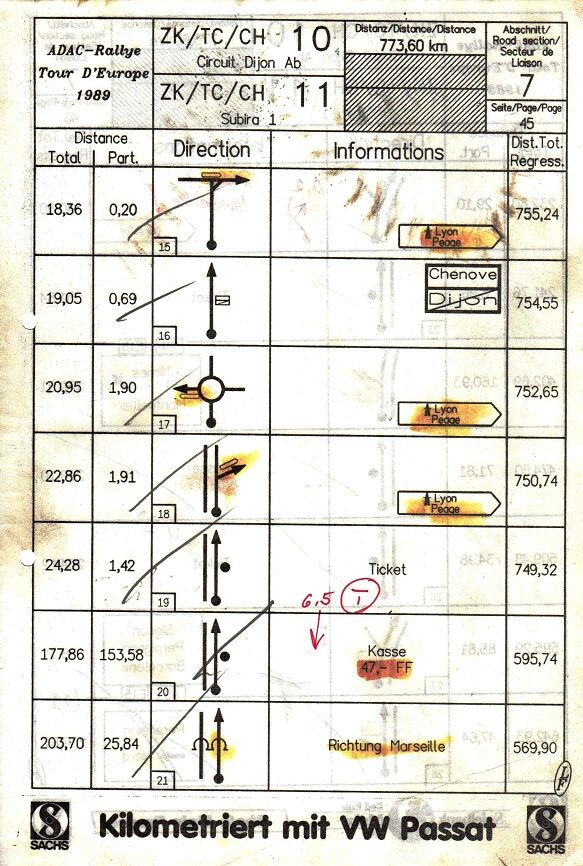 ADAC-Rallye
Tour D'Europe
1989
ZK/TC/CH 10
Circuit Dijon Ab
ZK/TC/CH 11
Subira 1
Distanz/Distance/Distance
773,60 km
Abschnitt/
Road section/
Secteur de
Liaison
7
Seite/Page/Page
45
Distance
Total Part. Direction Informations Dist.Tot.
Regress.
18,36 0,20 15 Lyon
Peage 755,24
19,05 0,69 16 Chenove
Dijon 754,55
20,95 1,90 17 Lyon
Peage 752,65
22,86 1,91 18 Lyon
Peage 750,74
24,28 1,42 19 Ticket 749,32
6,5 T
177,86 153,58 20 Kasse
47,- FF 595,74
203,70 25,84 21 Richtung Marseille 569,90
SACHS Kilometriert mit VW Passat SACHS